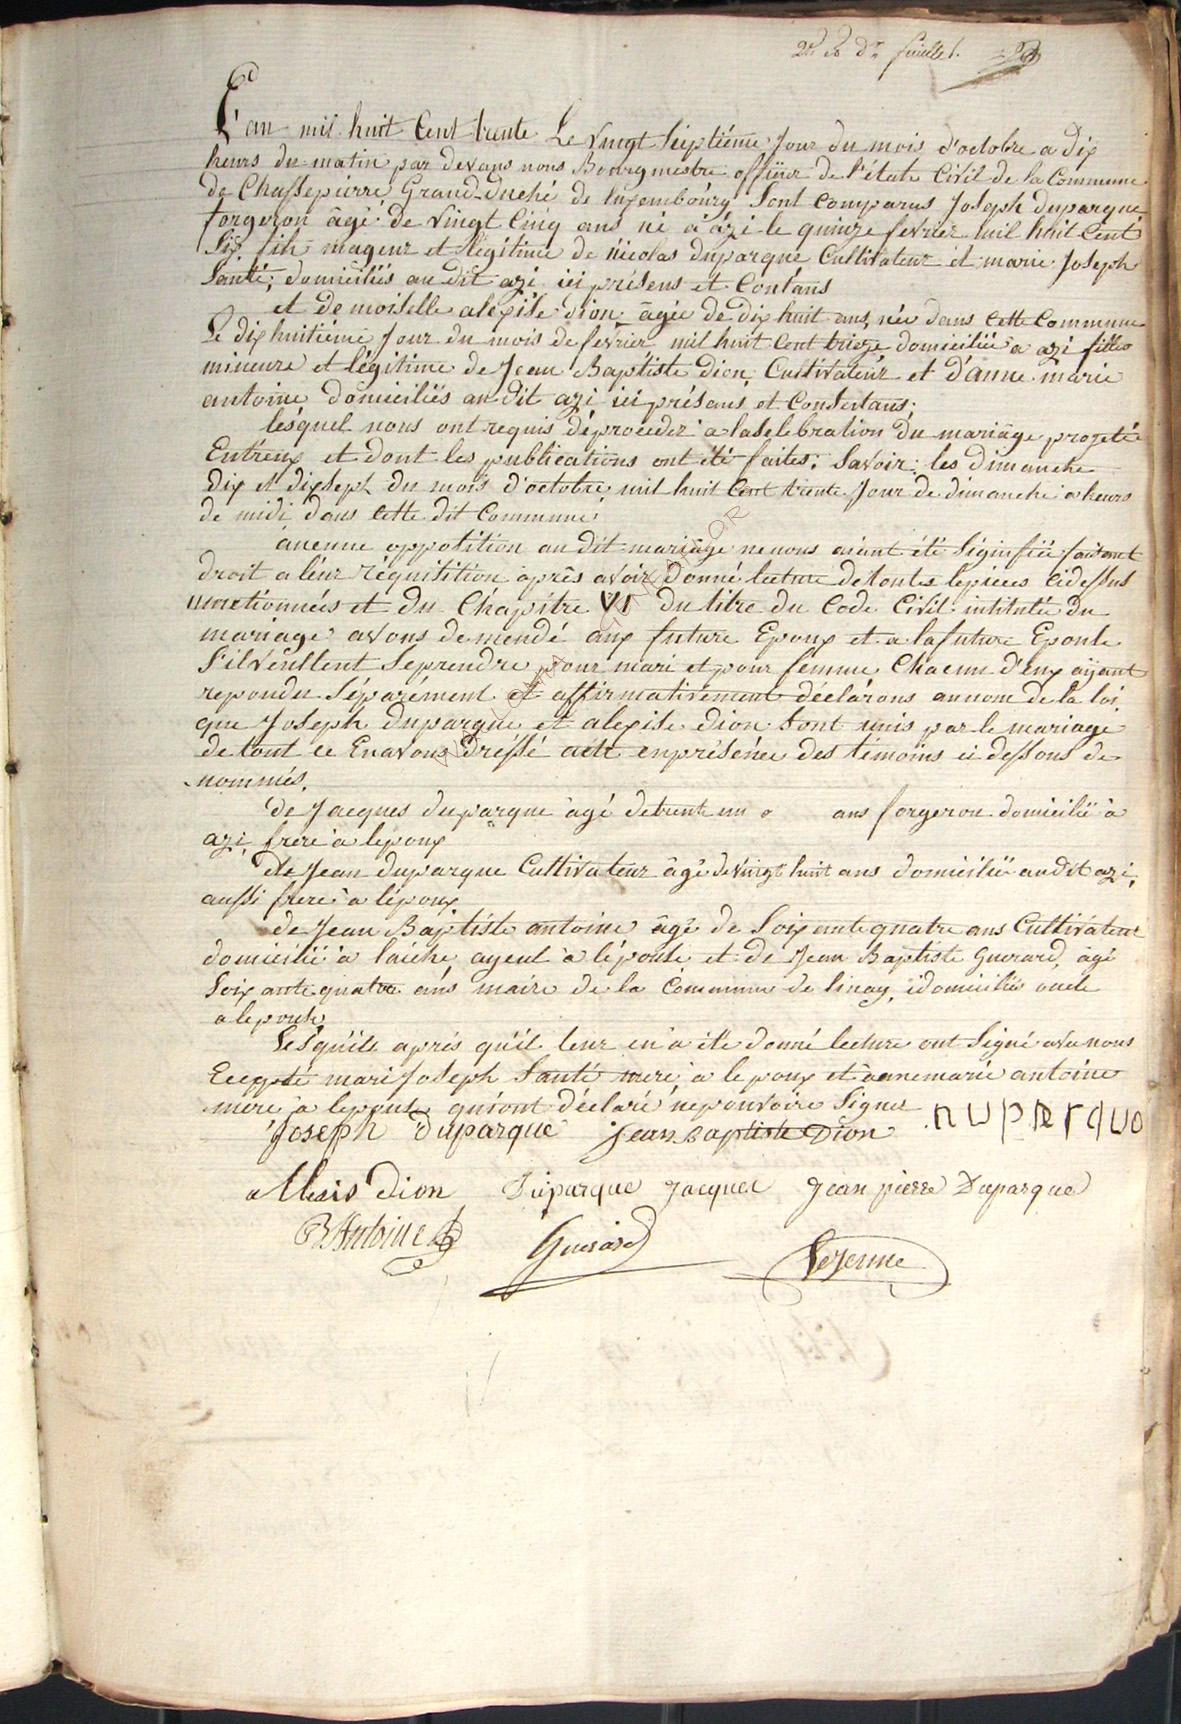 2e & dr feuillet.
L'an mil huit Cent trente Le vingt Septiéme Jour du mois d'octobre a dix
heurs du matin par devans nous Bourgmestre offiier de l'état Civil de la Commune
de Chassepierre Grand-duché de luxembourg Sont Comparus Joseph duparque
forgeron âgé de vingt Cinq ans né à azi le quinze fevrier mil huit Cent
Six fils mageur et légitime de Nicolas duparque Cultivateur et marie Joseph
Santé; domiciliés au dit azi ici présens et Contans
et demoiselle alexise dion âgée de dix huit ans, née dans cette Commune
Le dix huitiéme Jour du mois de fevrier mil huit Cent trieze domiciliée a azi fille
mineure et légitime de Jean Baptiste dion, Cultivateur et d'anne marie
antoine domiciliés au dit azi ici présans et Consertans;
lésquel nous ont requis déproceder a laselebration du mariage projetée
Entreux et dont les publications ont été faites; Savoir; les dimanche
dix et dixsept du mois d'octobre mil huit Cent trente Jour de dimanche a heurs
de midi dans cette dit Commune
aucune opposition au dit mariage ne nous aiant été Siginfiée faisant
droit a leur réquisition après avoir donné lecture de toutes lepieces cidessus
mentionnées et du Chapitre VI du titre du Code Civil intitulée du
mariage avons demendé aux future Epoux et a la future Epouse
S'ilveullent Seprendre pour mari et pour femme Chacun d'eux ayant
repondu Séparément et affirmativement déclárons aunom de la loi
que Joseph duparque et alexise dion Sont unis par le mariage
de tout ce Enavons dréssé acte enprésence des témoins ci dessous de
nommés.
de Jacques duparque âgé detrente un o ans forgeron domicilié à
azi, frere à lépoux
de Jean duparque Cultivateur âgé de vingt huit ans domicilié audit azi,
aussi frere à lépoux
de Jean Baptiste antoine âgé de Soixante quatre ans Cultivateur
domicilié à laiche, ayeul à lépouse et de Jean Baptiste Guerard, âgé
Soixante quatre ans maire de la Commune de linay, idomiciliée oncle
a lepouse
Lesquils après qu'il leur en a été donné lecture ont Signé avec nous
Ecepté mari Joseph Santé mere a lepoux et annemarie antoine
mere a lepouse qui ont déclaré nepouvoire Signer
Joseph duparque Jean Baptiste Dion nuperquo
alexis dion Duparque Jacques Jean pierre Duparque
B Antoine Guerard LeJeune